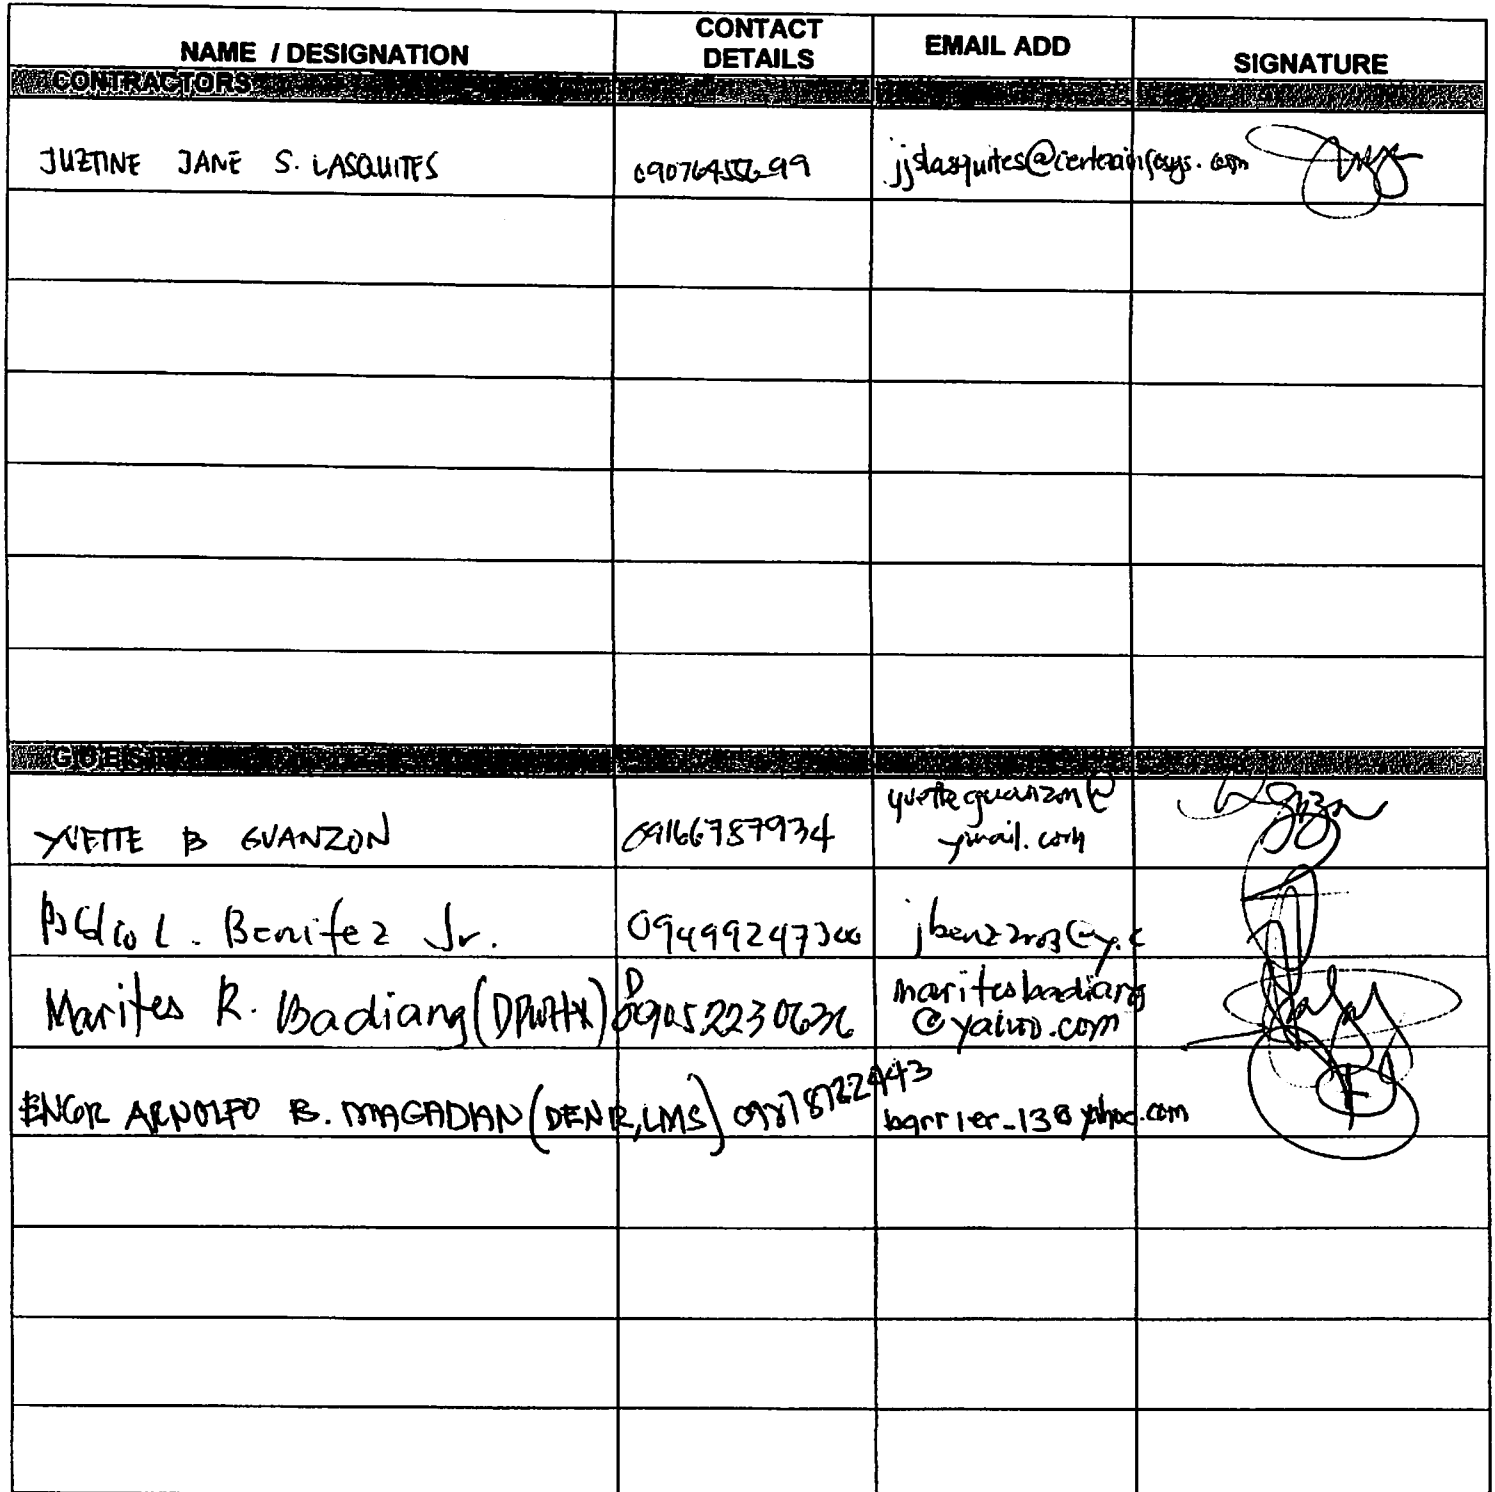 NAME / DESIGNATION
CONTACT
DETAILS
EMAIL ADD
SIGNATURE
CONTRACTORS
JUZTINE JANE S. LASQUITES
jjslasquites@certeainfosys.com
GUESTS
YVETTE B GUANZON
09166787934
yvetteguanzon@
ymail.com
L. Benitez Jr.
Marites R. Badiang
09052230636
maritesbadiang
@yahoo.com
ENGR ARNOLFO B. MAGADIAN (DENR, LMS)
barrier_13@yahoo.com